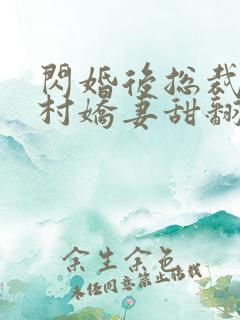 閃婚後總裁
村嬌妻甜翻
余生余色
未任同意禁止搭載